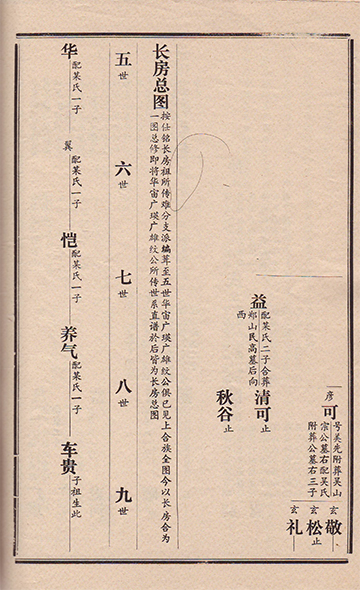 彦可
号美先附葬吴山
宗公墓右配吴氏
附葬公墓右三子
玄敬
玄松止
玄礼
益
配某氏二子合葬
郑山民高墓后向
西
清可止
秋谷止
长房总图
按仕铭长房祖所传难分支派编葬至五世华宙广瑛广雄纹公俱已见上合族全图今以长房合为
一图总修即将华宙广瑛广雄纹公所传世系直谱於后皆为长房总图
五世 六世 七世 八世 九世
华配某氏一子 翼配某氏一子 恺配某氏一子 养气配某氏一子 车贵子祖生此